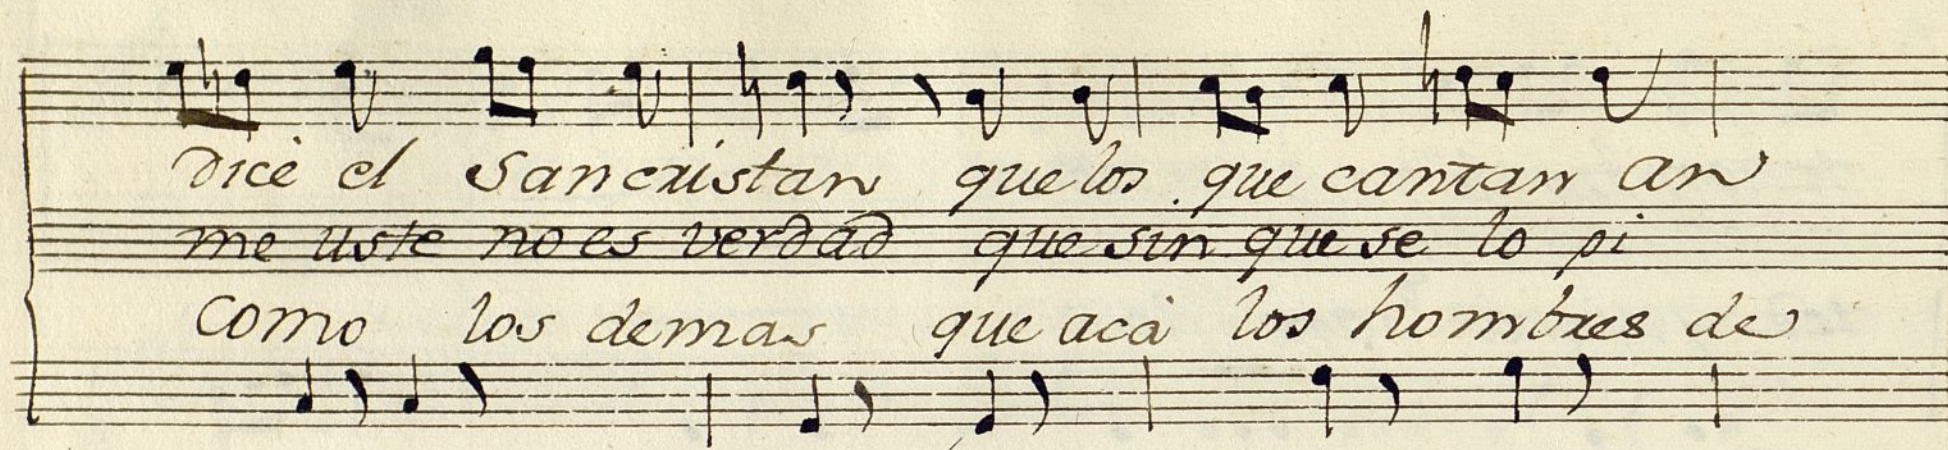 Dice el Sancristan que los que cantan an
me uste no es verdad que sin que se lo pi
Como los demas que acà los hombres de